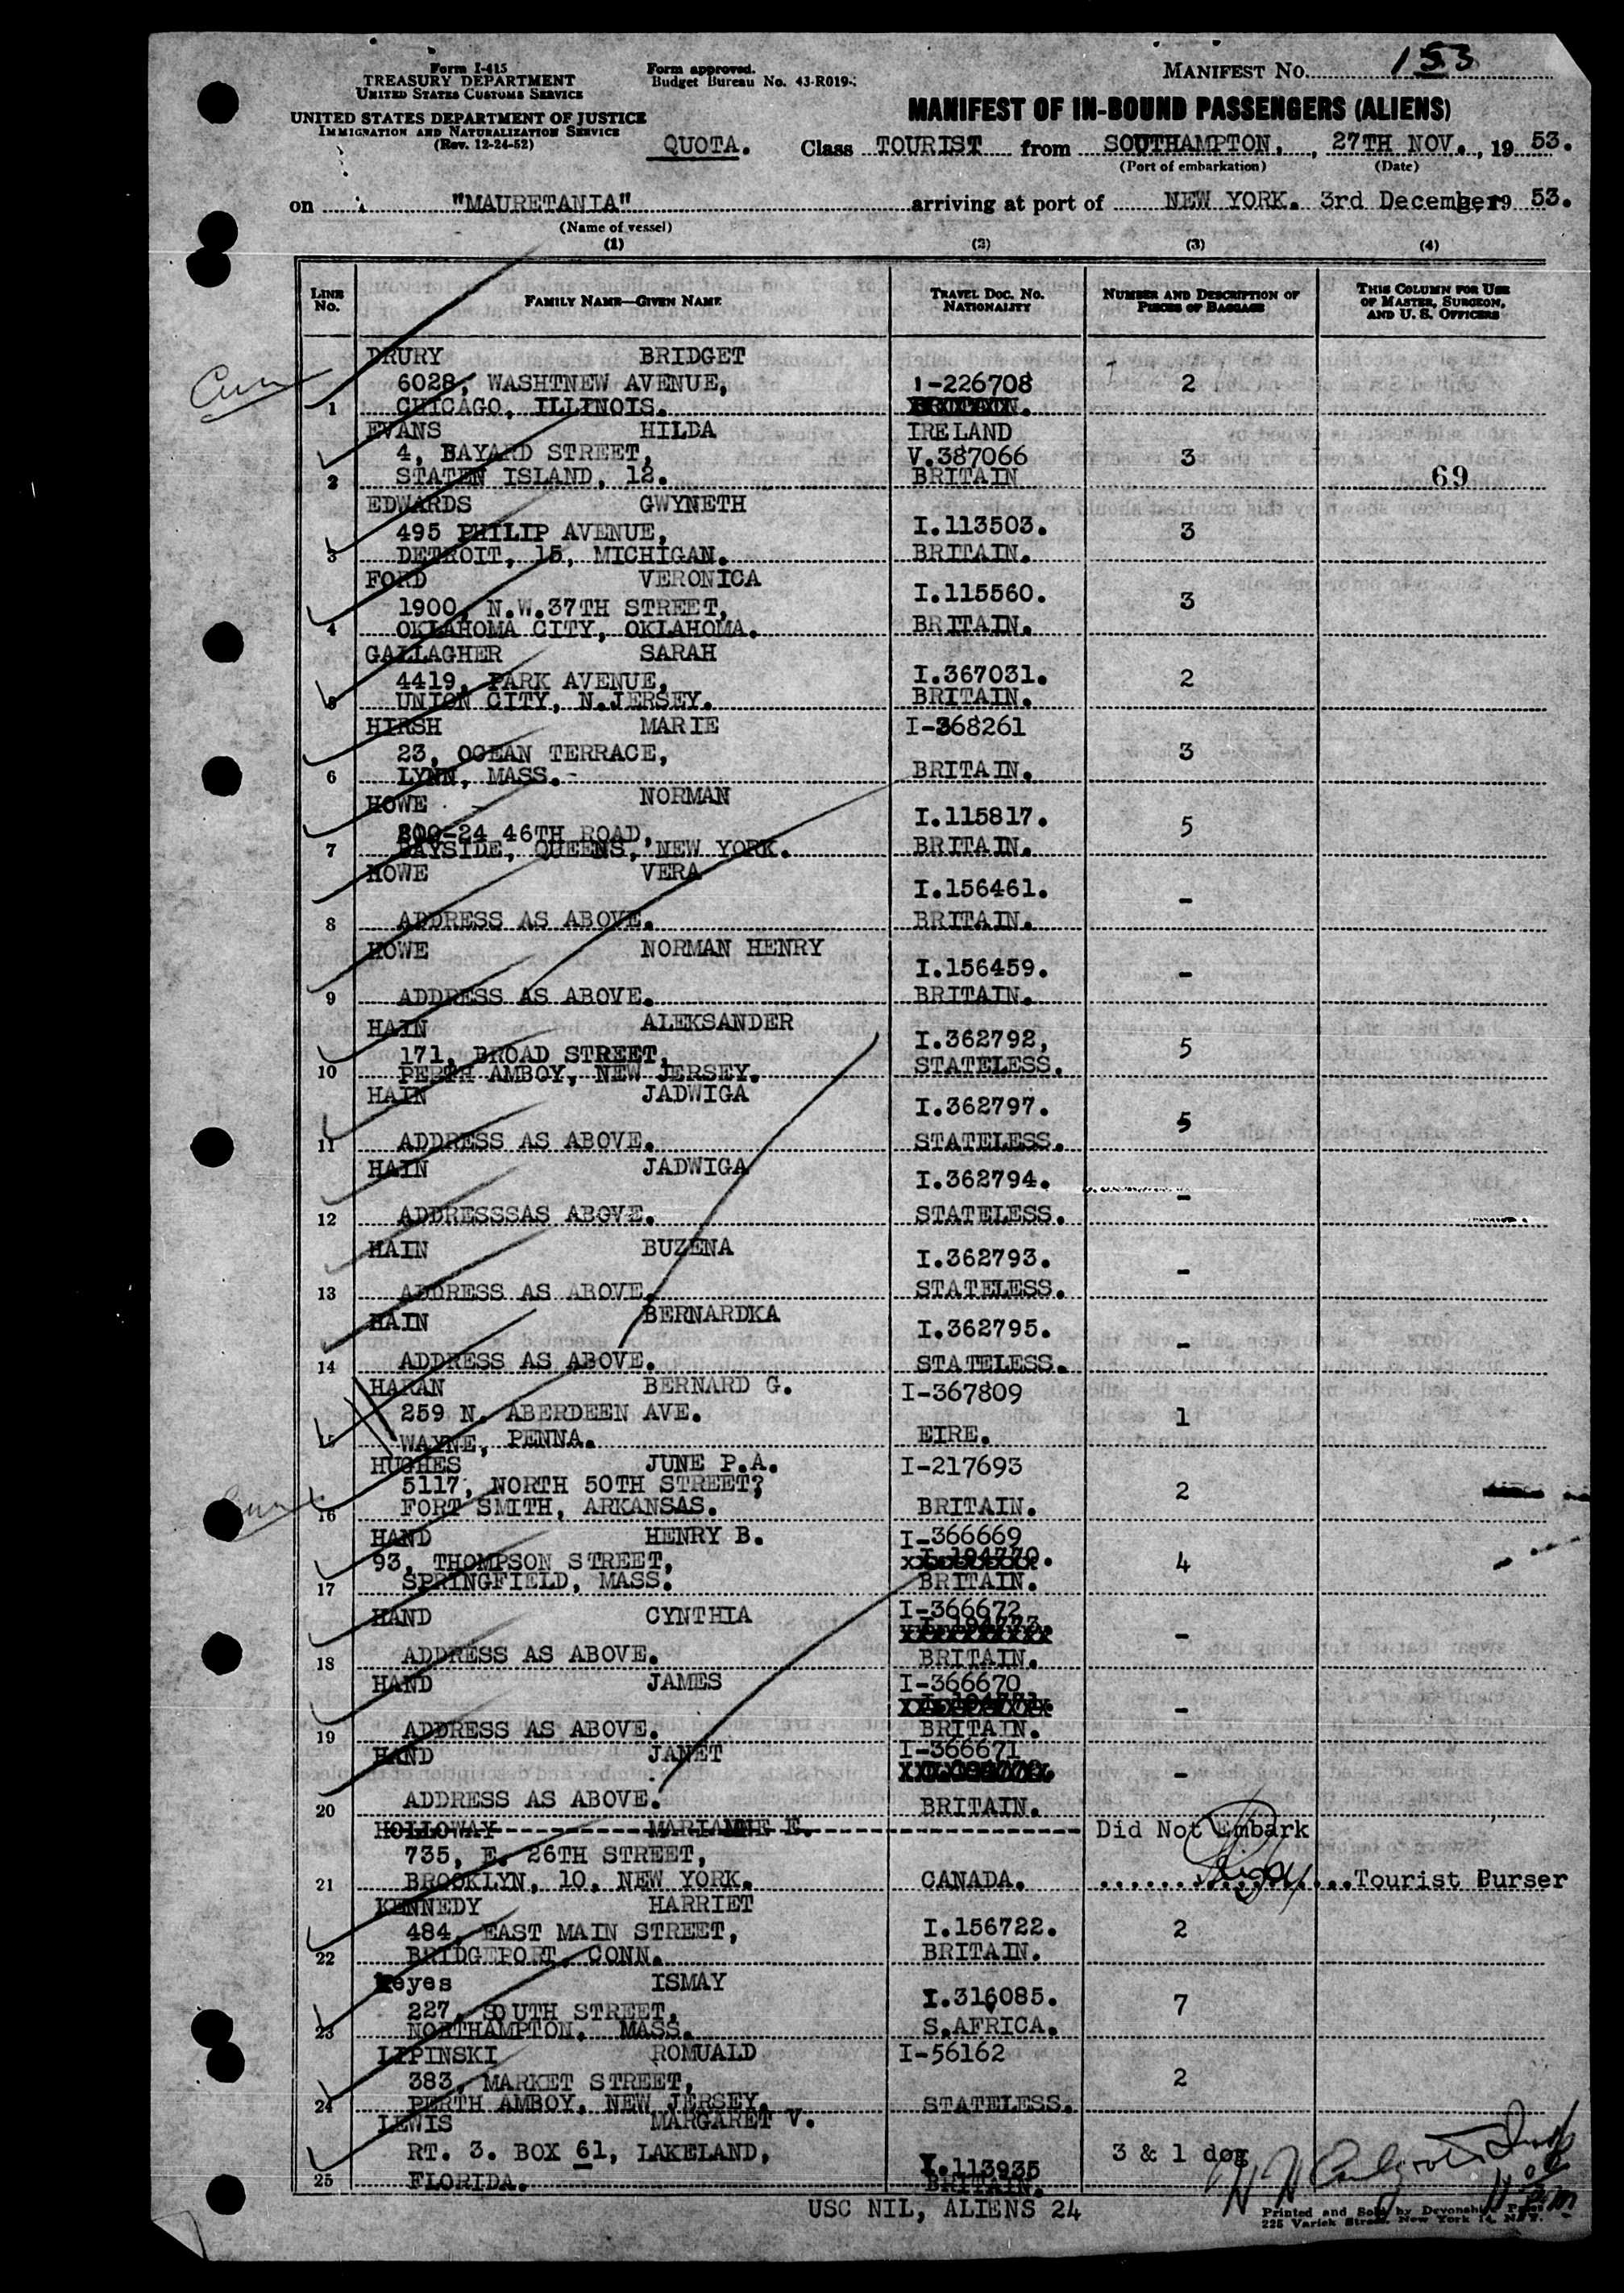 Form I-415
TREASURY DEPARTMENT
UNITED STATES CUSTOMS SERVICE
UNITED STATES DEPARTMENT OF JUSTICE
IMMIGRATION AND NATURALIZATION SERVICE
(Rev. 12-24-52)
Form approved.
Budget Bureau No. 43-R019-
MANIFEST NO. 153
MANIFEST OF IN-BOUND PASSENGERS (ALIENS)
QUOTA. Class TOURIST from SOUTHAMPTON. , 27TH NOV. , 19 53.
(Port of embarkation) (Date)
on "MAURETANIA" arriving at port of NEW YORK. 3rd December, 19 53.
(Name of vessel)
(1) (2) (3) (4)
LINE No. FAMILY NAME—GIVEN NAME TRAVEL DOC. NO. NATIONALITY NUMBER AND DESCRIPTION OF PIECES OF BAGGAGE THIS COLUMN FOR USE OF MASTER, SURGEON, AND U. S. OFFICERS
DRURY BRIDGET
6028, WASHTNEW AVENUE, I-226708 2
1 CHICAGO, ILLINOIS. BRITAIN.
EVANS HILDA IRELAND
4, BAYARD STREET, V.387066 3
2 STATEN ISLAND, 12. BRITAIN 69
EDWARDS GWYNETH
495 PHILIP AVENUE, I.113503. 3
3 DETROIT, 15, MICHIGAN. BRITAIN.
FORD VERONICA
1900, N.W.37TH STREET, I.115560. 3
4 OKLAHOMA CITY, OKLAHOMA. BRITAIN.
GALLAGHER SARAH
4419, PARK AVENUE, I.367031. 2
5 UNION CITY, N.JERSEY. BRITAIN.
HIRSH MARIE I-368261
23, OCEAN TERRACE, 3
6 LYNN, MASS. BRITAIN.
HOWE NORMAN
-24 46TH ROAD, I.115817. 5
7 BAYSIDE, QUEENS, NEW YORK. BRITAIN.
HOWE VERA
I.156461. -
8 ADDRESS AS ABOVE. BRITAIN.
HOWE NORMAN HENRY
I.156459. -
9 ADDRESS AS ABOVE. BRITAIN.
HAIN ALEKSANDER
171, BROAD STREET, I.362792, 5
10 PERTH AMBOY, NEW JERSEY. STATELESS.
HAIN JADWIGA
I.362797. 5
11 ADDRESS AS ABOVE. STATELESS.
HAIN JADWIGA
I.362794. -
12 ADDRESSSAS ABOVE. STATELESS.
HAIN BUZENA
I.362793. -
13 ADDRESS AS ABOVE. STATELESS.
HAIN BERNARDKA
I.362795. -
14 ADDRESS AS ABOVE. STATELESS.
HARAN BERNARD G. I-367809
259 N. ABERDEEN AVE. 1
15 WAYNE, PENNA. EIRE.
HUGHES JUNE P.A. I-217693
5117, NORTH 50TH STREET? 2
16 FORT SMITH, ARKANSAS. BRITAIN.
HAND HENRY B. I-366669
93, THOMPSON STREET, 4
17 SPRINGFIELD, MASS. BRITAIN.
HAND CYNTHIA I-366672
-
18 ADDRESS AS ABOVE. BRITAIN.
HAND JAMES I-366670
-
19 ADDRESS AS ABOVE. BRITAIN.
HAND JANET I-366671
-
20 ADDRESS AS ABOVE. BRITAIN.
HOLLOWAY MARIANNE E. Did Not Embark
735, E. 26TH STREET,
21 BROOKLYN, 10, NEW YORK. CANADA. Tourist Purser
KENNEDY HARRIET
484, EAST MAIN STREET, I.156722. 2
22 BRIDGEPORT, CONN. BRITAIN.
Keyes ISMAY
227, SOUTH STREET, I.316085. 7
23 NORTHAMPTON, MASS. S.AFRICA.
LIPINSKI ROMUALD I-56162
383, MARKET STREET, 2
24 PERTH AMBOY, NEW JERSEY. STATELESS.
LEWIS MARGARET V.
RT. 3. BOX 61, LAKELAND, I.113935 3 & 1 dog
25 FLORIDA. BRITAIN.
USC NIL, ALIENS 24
Printed and Sold by Devonshire Press
225 Varick Street, New York 14, N.Y.